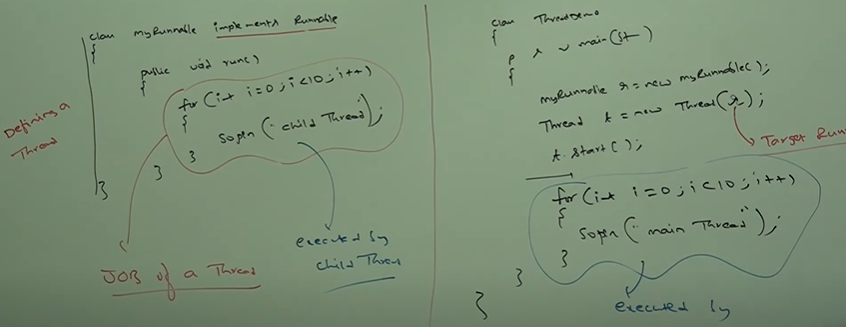 class myRunnable implements Runnable
{
public void run()
{
for (int i=0; i<10; i++)
{
Sopln("child Thread");
}
}
}
Defining a
Thread
JOB of a Thread
executed by
child Thread
class ThreadDemo
{
p s v main(St
{
myRunnable r = new myRunnable();
Thread t = new Thread(r);
t.start();
Target Run
for (int i=0; i<10; i++)
{
Sopln("main Thread");
}
}
}
executed by